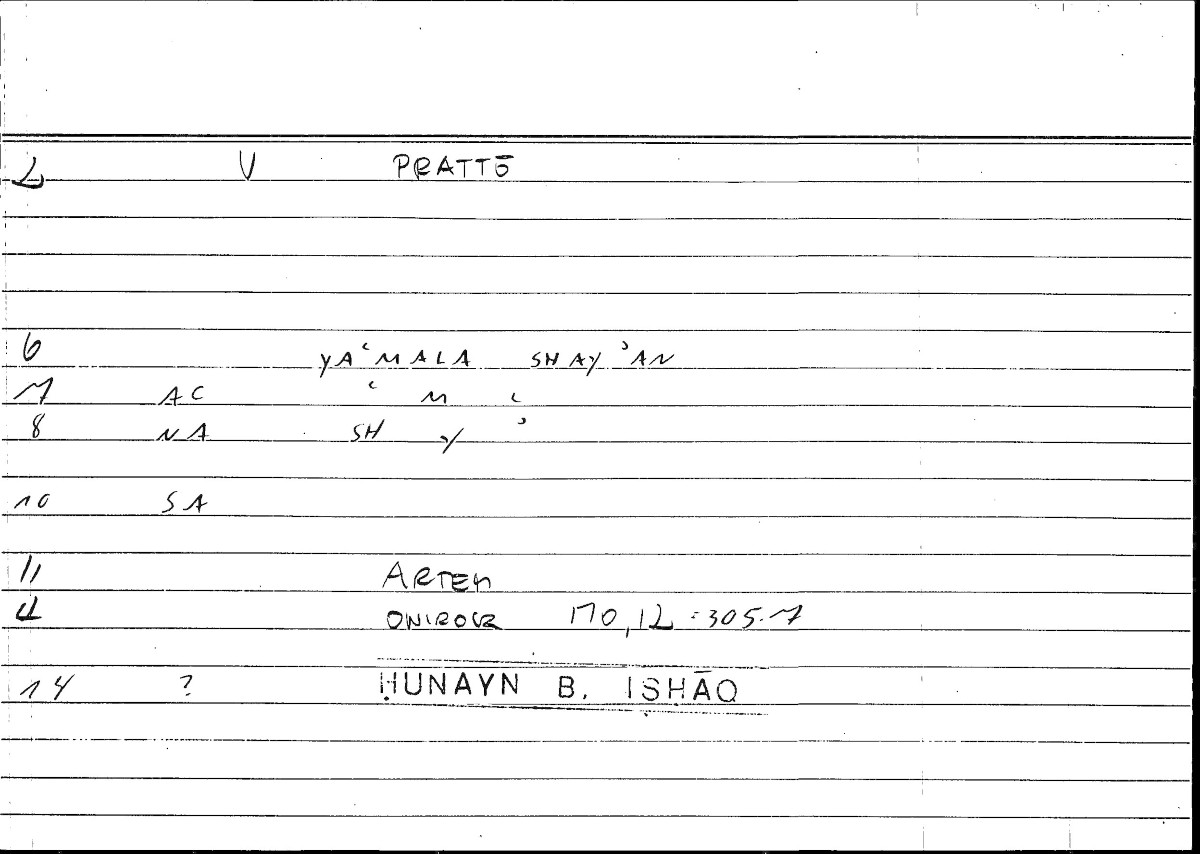 2 V PRATTŌ
6 YAʿMALA SHAYʾAN
7 AC ʿ M ʿ
8 NA SH Y ʾ
10 SA
11 ARTEM
ONIROCR 170,12 = 305.7
14 ? ḤUNAYN B. ISḤĀQ